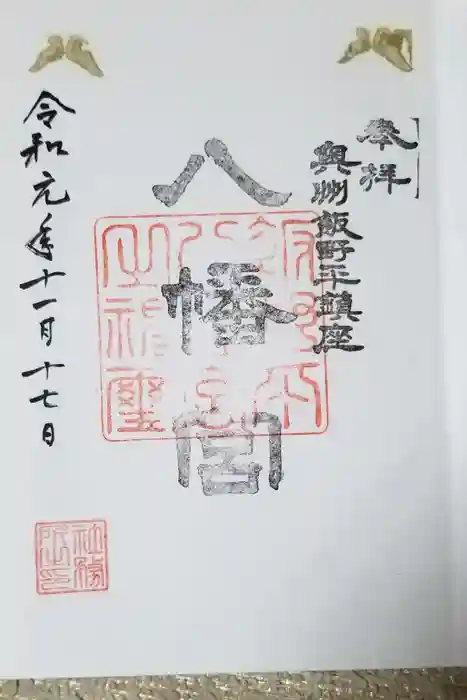 奉拝
奥州飯野平鎮座
八幡宮
令和元年十一月十七日